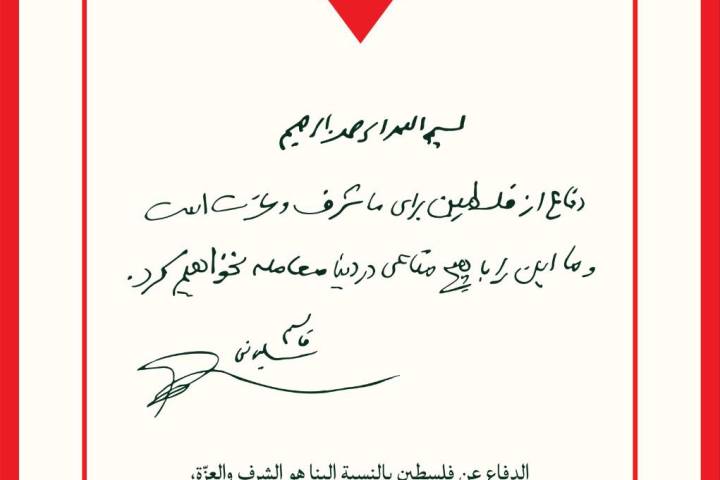 بسم الله الرحمن الرحیم
دفاع از فلسطین برای ما شرف و عزت است
و ما این را با هیچ متاعی در دنیا معامله نخواهیم کرد.
قاسم
سلیمانی
الدفاع عن فلسطين بالنسبة إلينا هو الشرف والعزّة،